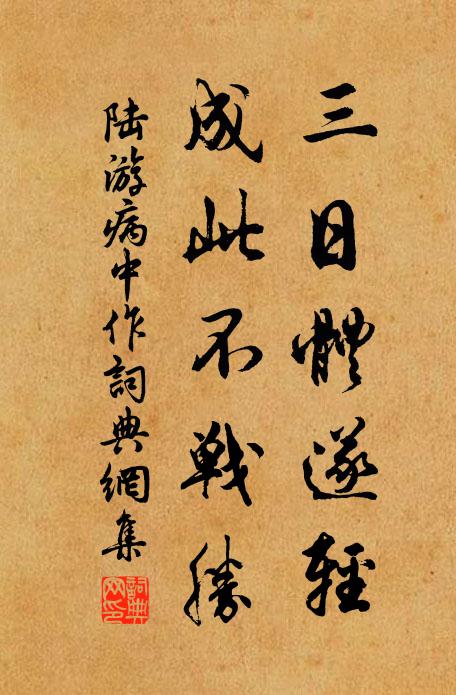 三日體遂輕
成此不戰勝
陆游病中作詞典網集
詞典網印